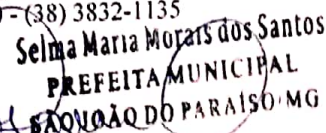 - (38) 3832-1135
Selma Maria Morais dos Santos
PREFEITA MUNICIPAL
SÃO JOÃO DO PARAÍSO-MG